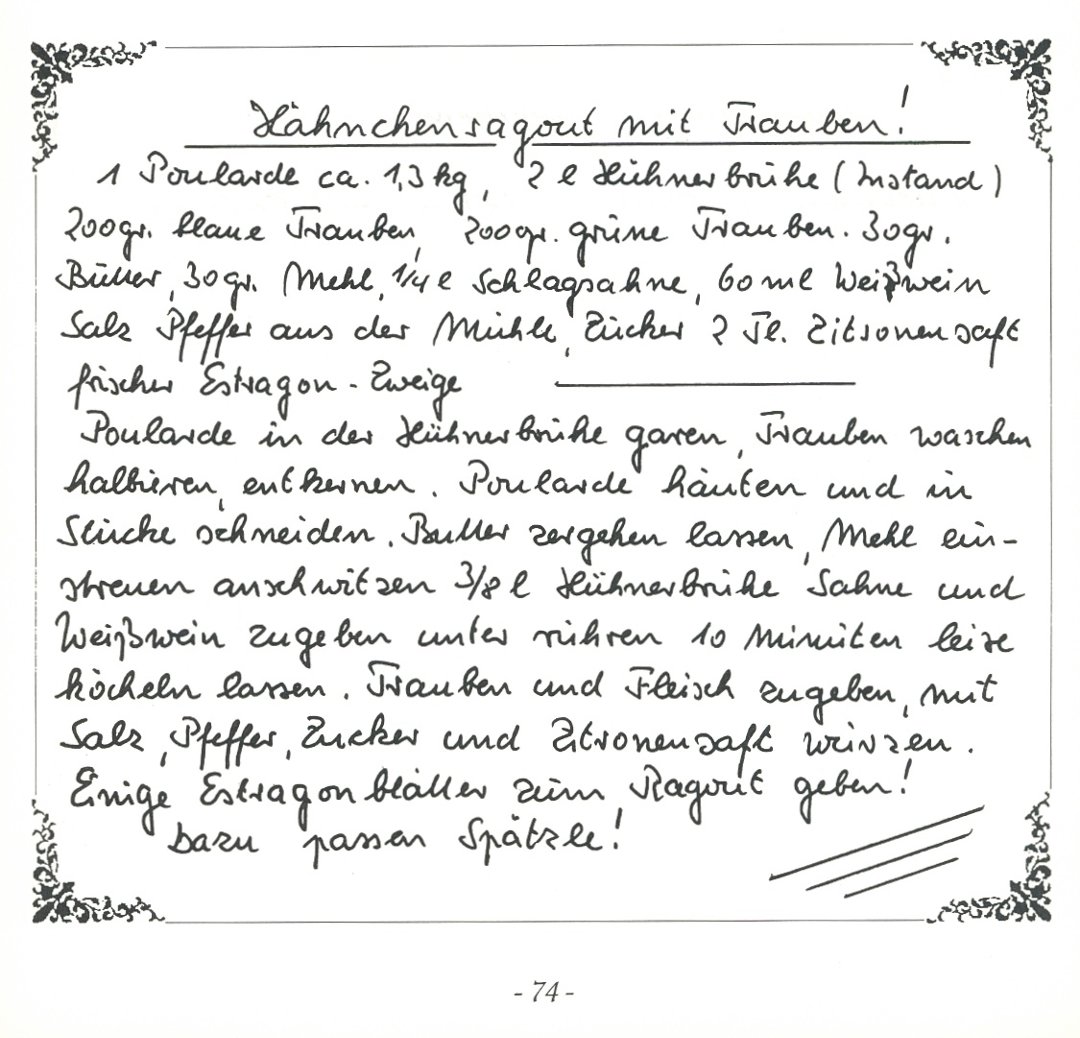 Hähnchenragout mit Trauben!
1 Poularde ca. 1,3 kg, 2 l Hühnerbrühe (Instand)
200gr. blaue Trauben, 200gr. grüne Trauben. 30gr.
Butter, 30gr. Mehl, 1/4 l Schlagsahne, 60 ml Weißwein
Salz Pfeffer aus der Mühle, Zucker 2 Tl. Zitronensaft
frischer Estragon-Zweige
Poularde in der Hühnerbrühe garen, Trauben waschen
halbieren, entkernen. Poularde häuten und in
Stücke schneiden. Butter zergehen lassen, Mehl ein-
streuen anschwitzen 3/8 l Hühnerbrühe Sahne und
Weißwein zugeben unter rühren 10 Minuten leise
köcheln lassen. Trauben und Fleisch zugeben, mit
Salz, Pfeffer, Zucker und Zitronensaft würzen.
Einige Estragonblätter zum Ragout geben!
Dazu passen Spätzle!
- 74 -